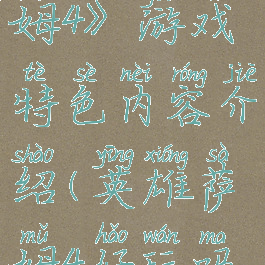 姆4》 游戏
tè sè nèi róng jiè
特色内容介
shào yīng xióng sà
绍(英雄萨
mǔ hǎo wán ma
姆4好玩吗